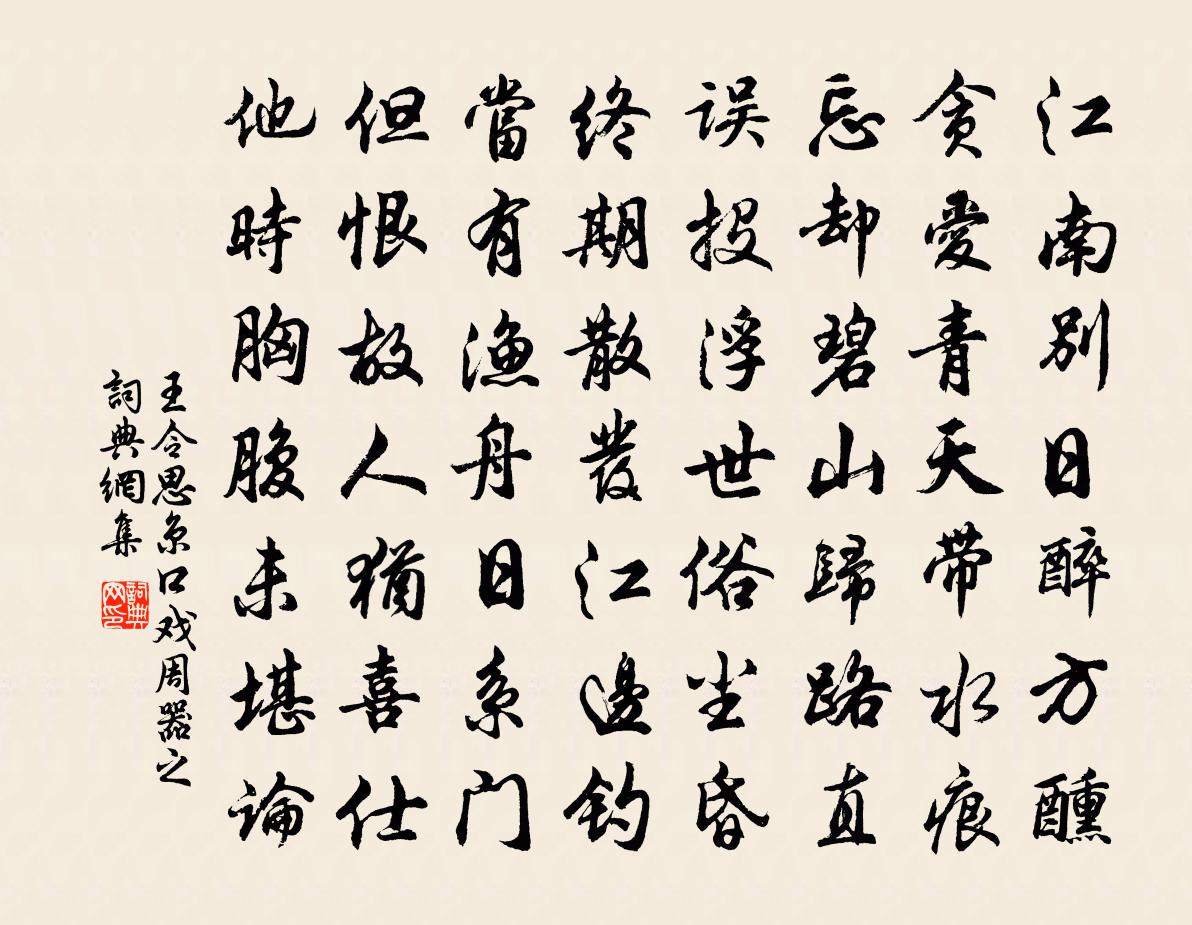 江南别日醉方醺
贪愛青天带水痕
忘却碧山歸路直
误投浮世俗尘昏
終期散發江邊钓
當有漁舟日系门
但恨故人猶喜仕
他時胸腹未堪論
王令思京口戏周器之
詞典網集